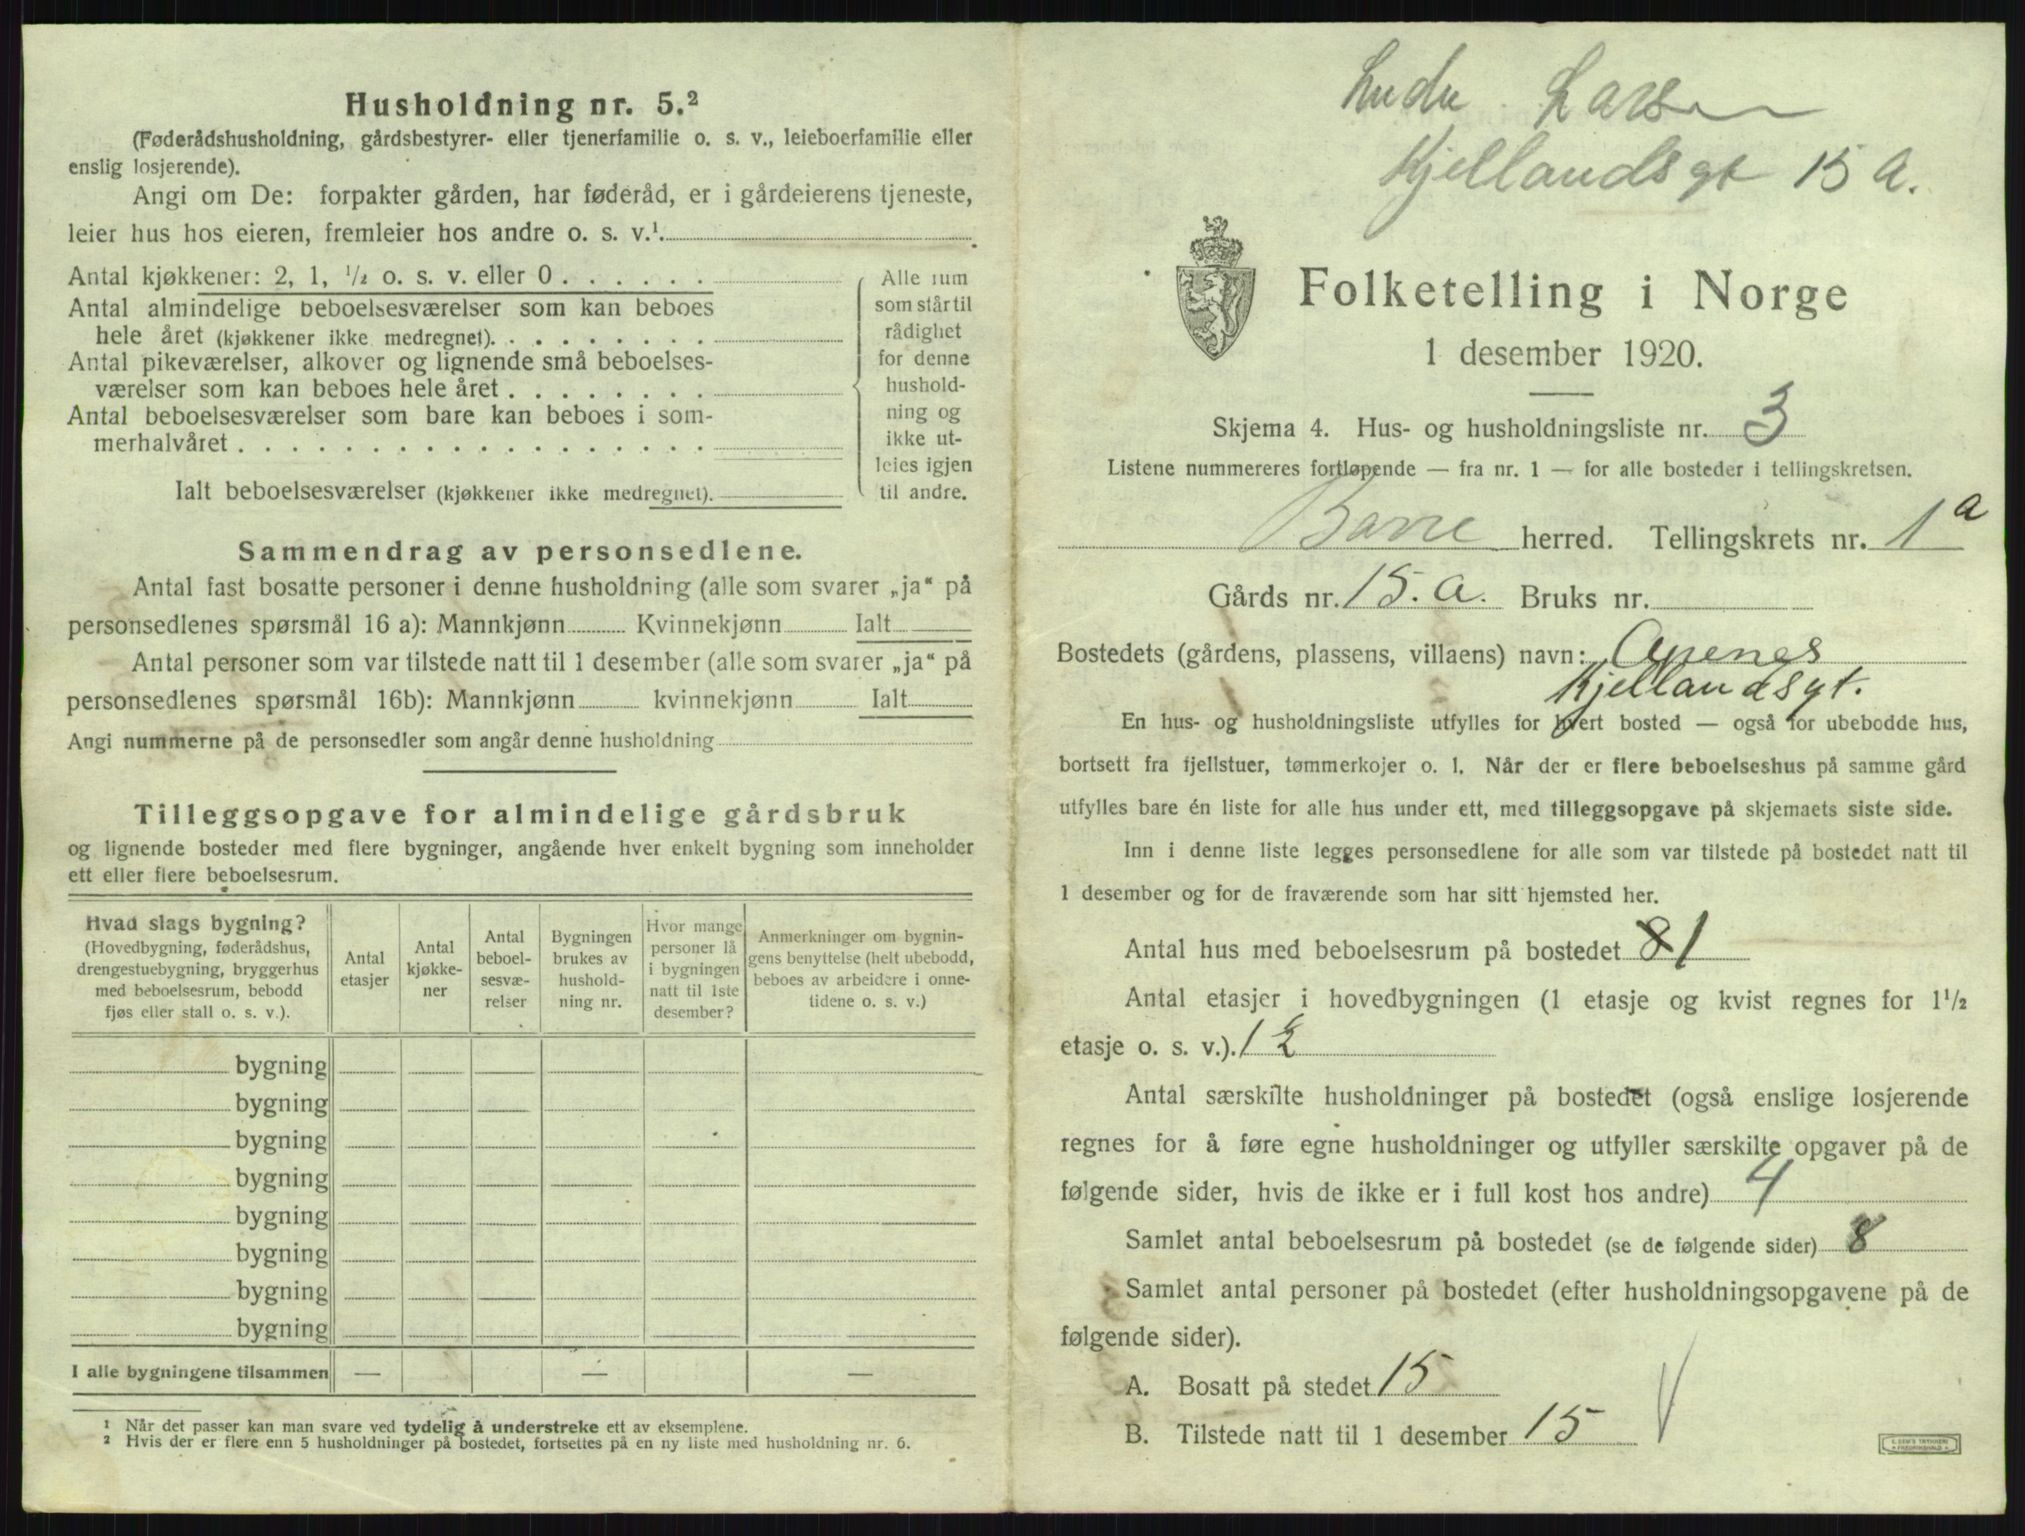 Husholdning nr. 5.²
(Føderådshusholdning, gårdsbestyrer- eller tjenerfamilie o. s. v., leieboerfamilie eller
enslig losjerende).
Angi om De: forpakter gården, har føderåd, er i gårdeierens tjeneste,
leier hus hos eieren, fremleier hos andre o. s. v.¹
Antal kjøkkener: 2, 1, ¹/₂ o. s. v. eller 0
Antal almindelige beboelsesværelser som kan beboes
hele året (kjøkkener ikke medregnet)
Antal pikeværelser, alkover og lignende små beboelses-
værelser som kan beboes hele året
Antal beboelsesværelser som bare kan beboes i som-
merhalvåret
Ialt beboelsesværelser (kjøkkener ikke medregnet)
Alle rum
som står til
rådighet
for denne
hushold-
ning og
ikke ut-
leies igjen
til andre.
Sammendrag av personsedlene.
Antal fast bosatte personer i denne husholdning (alle som svarer „ja“ på
personsedlenes spørsmål 16 a): Mannkjønn Kvinnekjønn Ialt
Antal personer som var tilstede natt til 1 desember (alle som svarer „ja“ på
personsedlenes spørsmål 16b): Mannkjønn kvinnekjønn Ialt
Angi nummerne på de personsedler som angår denne husholdning
Tilleggsopgave for almindelige gårdsbruk
og lignende bosteder med flere bygninger, angående hver enkelt bygning som inneholder
ett eller flere beboelsesrum.
Hvad slags bygning?
(Hovedbygning, føderådshus,
drengestuebygning, bryggerhus
med beboelsesrum, bebodd
fjøs eller stall o. s. v.).
Antal
etasjer
Antal
kjøkke-
ner
Antal
beboel-
sesvæ-
relser
Bygningen
brukes av
hushold-
ning nr.
Hvor mange
personer lå
i bygningen
natt til 1ste
desember?
Anmerkninger om bygnin-
gens benyttelse (helt ubebodd,
beboes av arbeidere i onne-
tidene o. s. v.)
bygning
bygning
bygning
bygning
bygning
bygning
bygning
bygning
I alle bygningene tilsammen — — —
¹ Når det passer kan man svare ved tydelig å understreke ett av eksemplene.
² Hvis der er flere enn 5 husholdninger på bostedet, fortsettes på en ny liste med husholdning nr. 6.
Larsen
Kjellandsgt 15 A.
Folketelling i Norge
1 desember 1920.
Skjema 4. Hus- og husholdningsliste nr. 3
Listene nummereres fortløpende — fra nr. 1 — for alle bosteder i tellingskretsen.
Borre herred. Tellingskrets nr. 1 a
Gårds nr. 15. a. Bruks nr.
Bostedets (gårdens, plassens, villaens) navn: Apenes
Kjellandsgt.
En hus- og husholdningsliste utfylles for hvert bosted — også for ubebodde hus,
bortsett fra fjellstuer, tømmerkojer o. l. Når der er flere beboelseshus på samme gård
utfylles bare én liste for alle hus under ett, med tilleggsopgave på skjemaets siste side.
Inn i denne liste legges personsedlene for alle som var tilstede på bostedet natt til
1 desember og for de fraværende som har sitt hjemsted her.
Antal hus med beboelsesrum på bostedet 8 1
Antal etasjer i hovedbygningen (1 etasje og kvist regnes for 1¹/₂
etasje o. s. v.). 1½
Antal særskilte husholdninger på bostedet (også enslige losjerende
regnes for å føre egne husholdninger og utfyller særskilte opgaver på de
følgende sider, hvis de ikke er i full kost hos andre) 4
Samlet antal beboelsesrum på bostedet (se de følgende sider) 8
Samlet antal personer på bostedet (efter husholdningsopgavene på de
følgende sider).
A. Bosatt på stedet 15
B. Tilstede natt til 1 desember 15
E. SEM'S TRYKKERI
FREDRIKSHALD